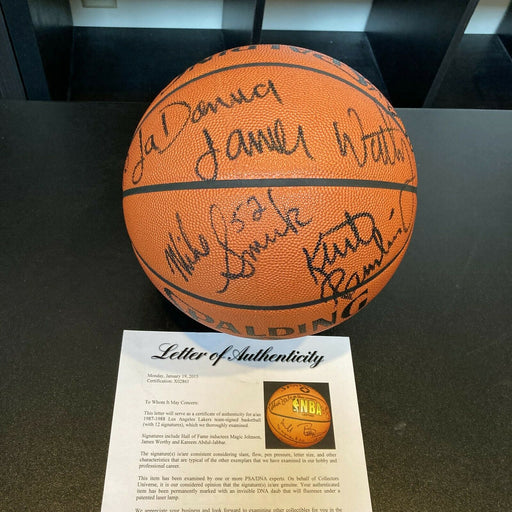 LaDonna
James Worthy
Mike 52 Smrek
Kurt Rambis
SPALDING
Letter of Authenticity
Monday, January 19, 2015
Certification: X02861
To Whom It May Concern:
This letter will serve as a certificate of authenticity for a/an
1987-1988 Los Angeles Lakers team-signed basketball
(with 12 signatures), which we thoroughly examined.
Signatures include Hall of Fame inductees Magic Johnson,
James Worthy and Kareem Abdul-Jabbar.
The signature(s) is/are consistent considering slant, flow, pen pressure, letter size, and other
characteristics that are typical of the other exemplars that we have examined in our hobby and
professional career.
This item has been examined by one or more PSA/DNA experts. On behalf of Collectors
Universe, it is our considered opinion that the signature(s) is/are genuine. Your authenticated
item has been permanently marked with an invisible DNA daub that will fluoresce under a
patent laser lamp.
We appreciate your business and look forward to examining other collectibles for you in the
NBA